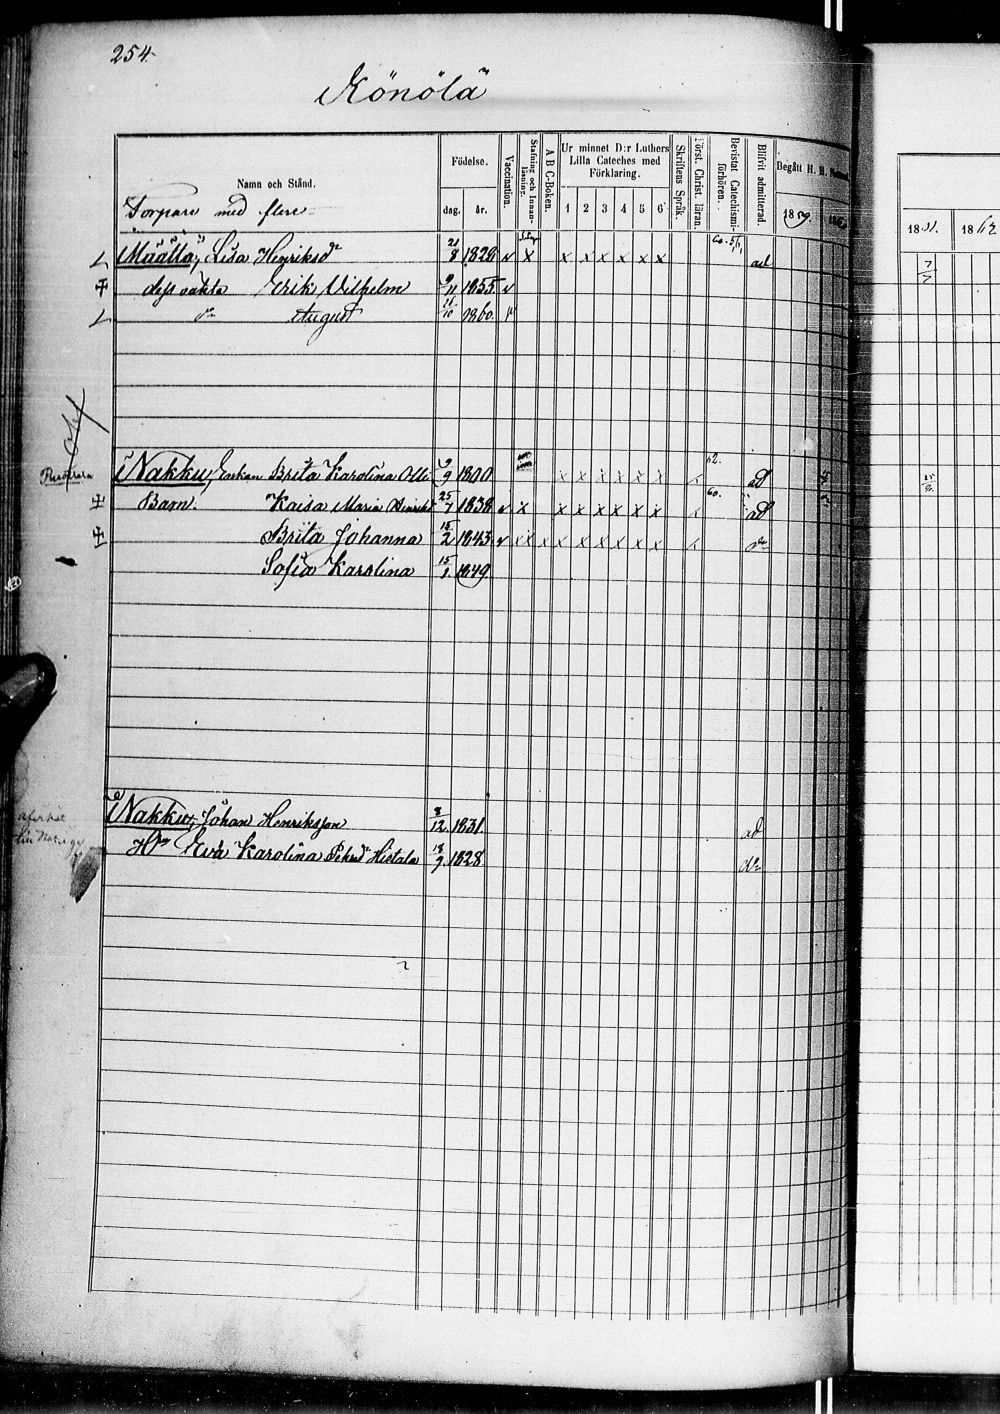 254.
Könölä
Namn och Stånd.
Födelse.
dag. år.
Vaccination.
Stafning och Innanläsning.
A B C-Boken.
Ur minnet D:r Luthers Lilla Cateches med Förklaring.
1 2 3 4 5 6
Skriftens Språk.
Först. Christ. läran.
Bevistat Catechismiförhören.
Blifvit admitterad.
Begått H. H.
1859.
18
Torpare med flere
Määttä, Lisa Henriksdr 21/8 1829 v x x x x x x x ad
dess oäkta Erik Vilhelm 9/11 1855 v
do August 11/10 1860.
Nakku, Enkan Brita Karolina Olli 9/9 1800 x x x x x x 62. ad
Barn. Kaisa Maria Henriksd 25/7 1838 v x x x x x x x 60. ad
Brita Johanna 15/2 1843 v x x x x x x do
Sofia Karolina 15/1. 1849.
Nakku, Johan Henriksson 8/12 1831. ad
Hu Eva Karolina Pehrsdr Hietala 18/9. 1828. do